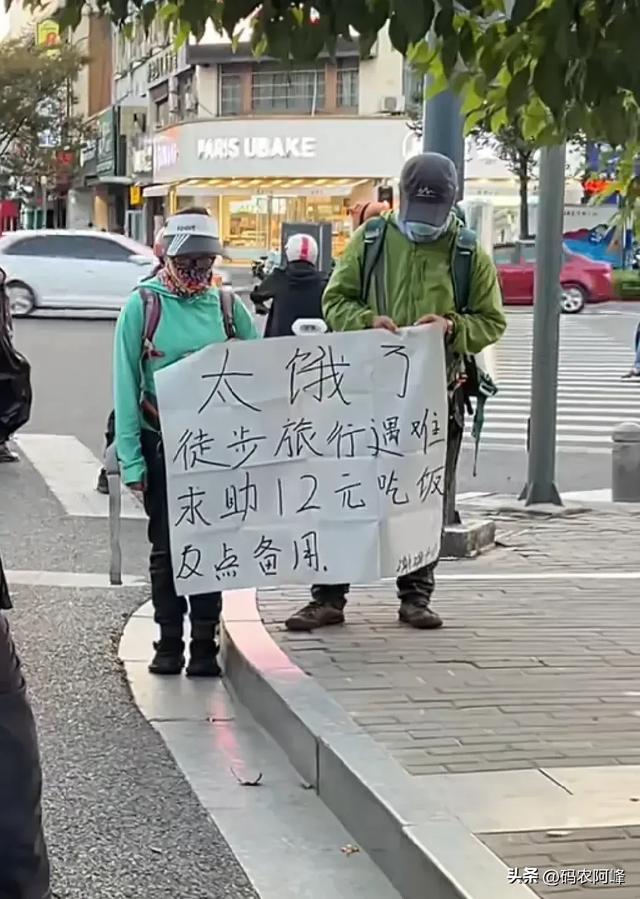 PARIS UBAKE
太饿了
徒步旅行遇难
求助12元吃饭
及点备用.
头条 @码农阿峰